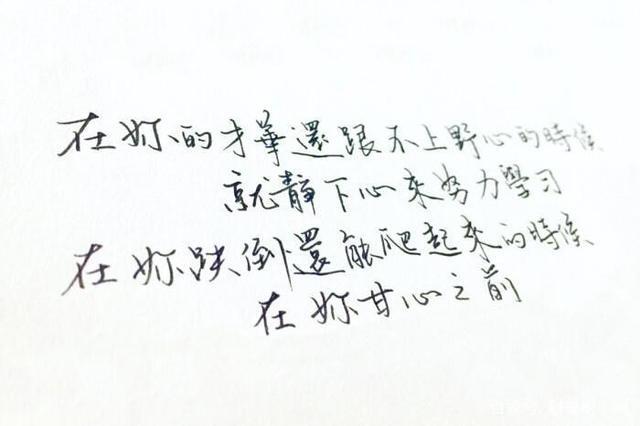 在妳的才華還跟不上野心的時候
就靜下心來努力學习
在妳跌倒還能爬起來的時候
在妳甘心之前